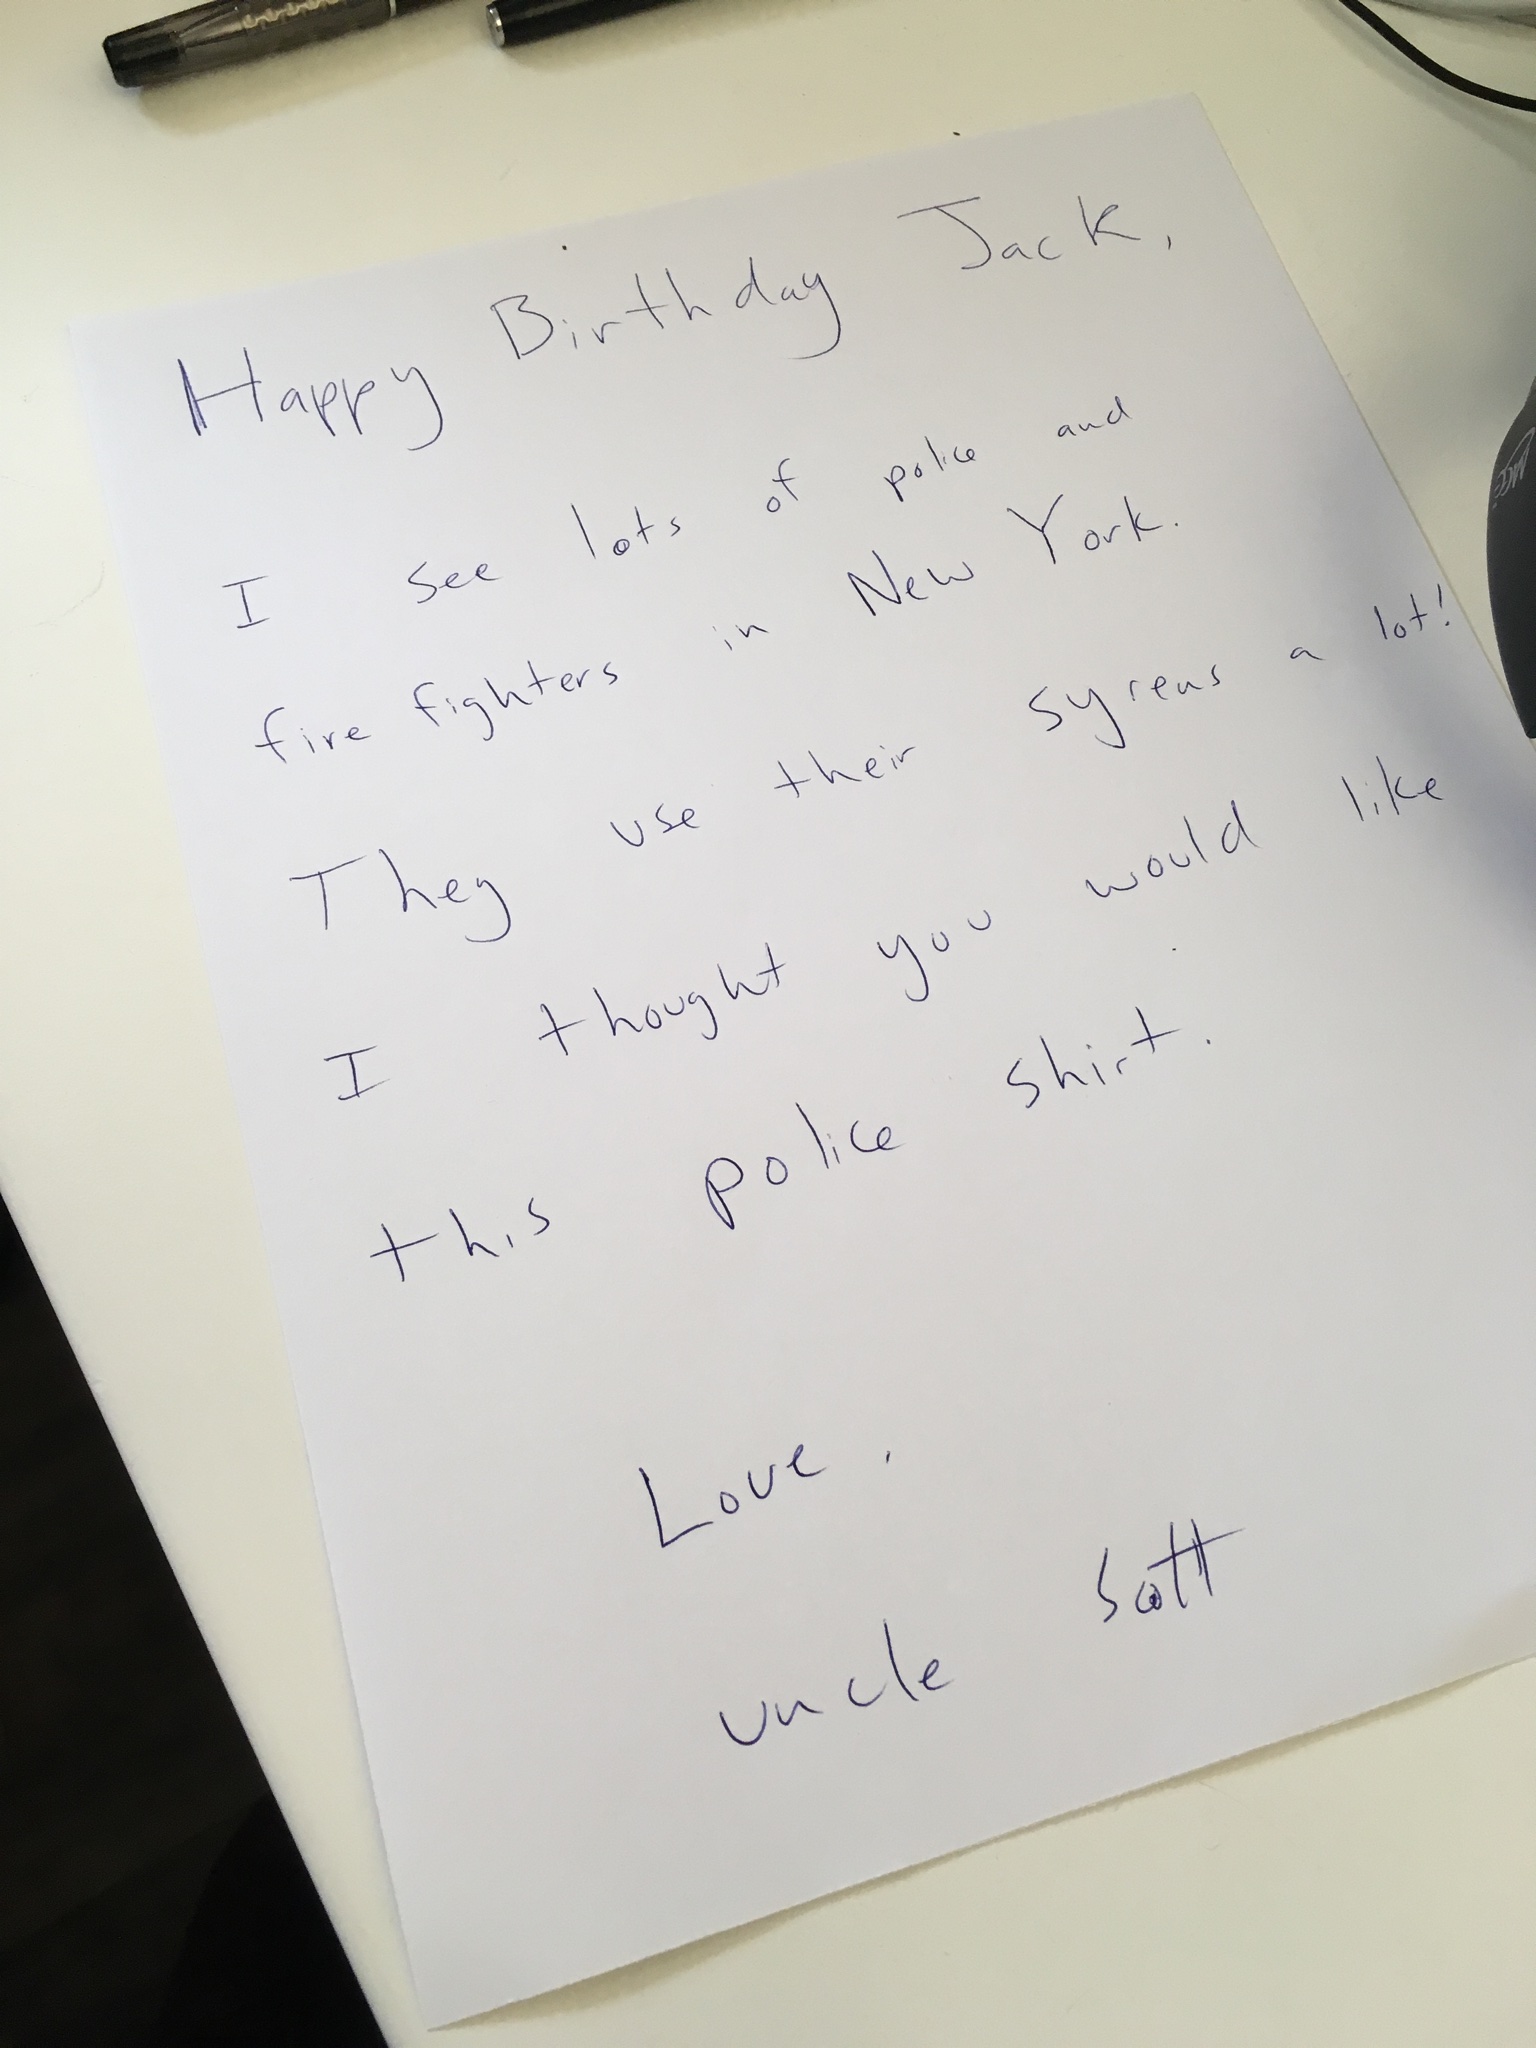 Happy Birthday Jack,
I see lots of police and
fire fighters in New York.
They use their syrens a lot!
I thought you would like
this police shirt.
Love,
uncle Scott